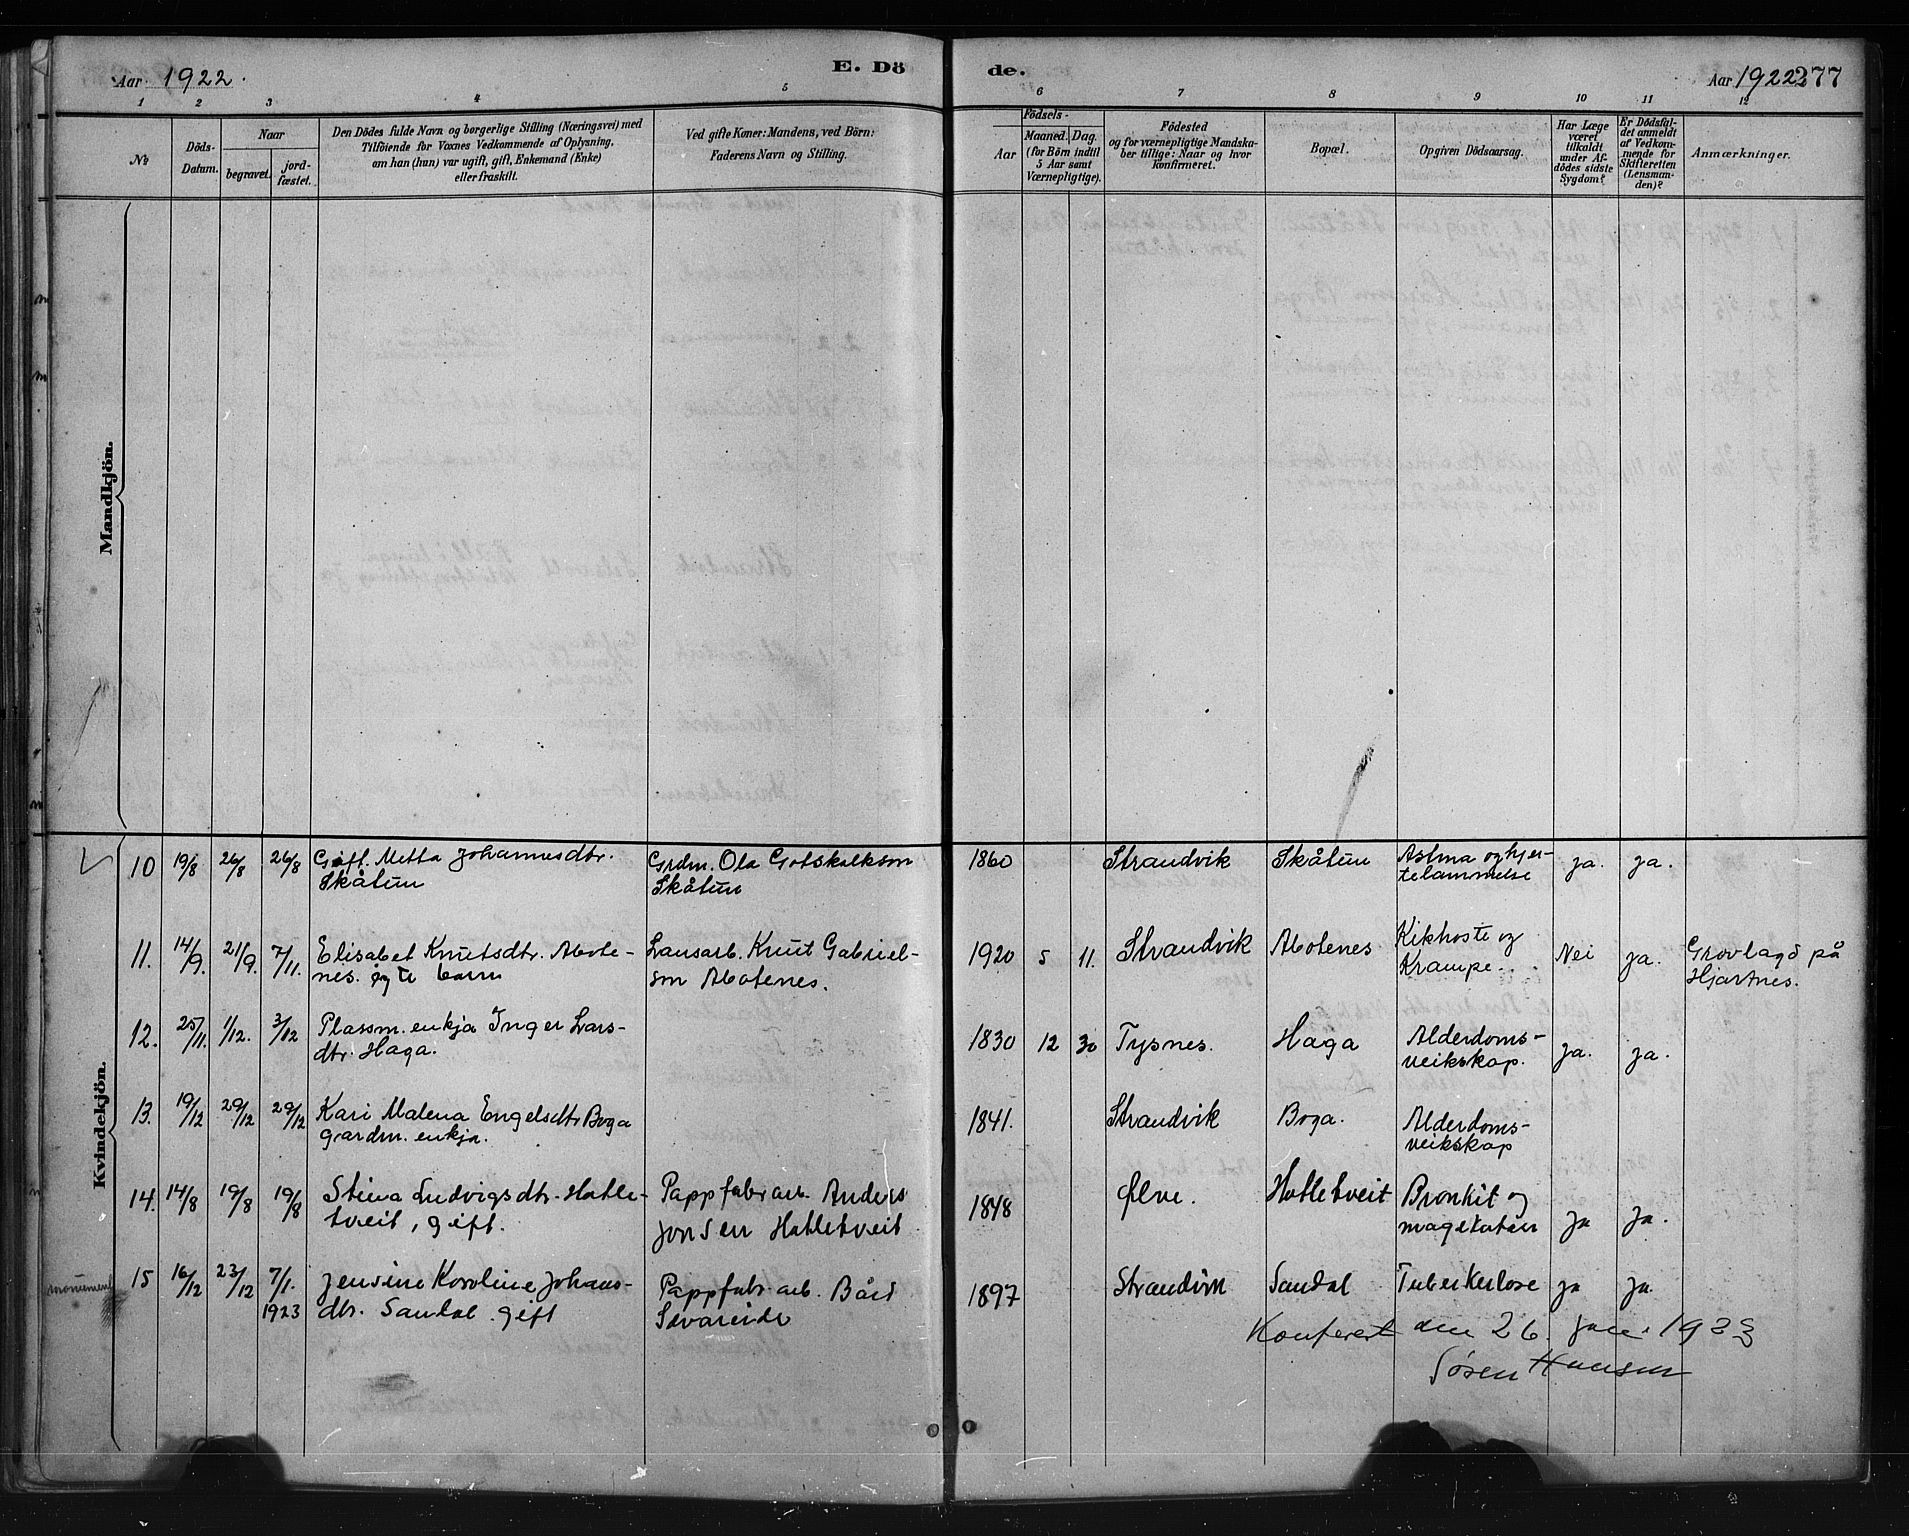 Aar 1922.
E. Dö
de.
Aar 1922
277
1 2 3 4 5
6 7 8 9 10 11 12
No
Döds-
Datum.
Naar
begravet.
jord-
fæstet.
Den Dödes fulde Navn og borgerlige Stilling (Næringsvei) med
Tilföiende for Voxnes Vedkommende af Oplysning,
om han (hun) var ugift, gift, Enkemand (Enke)
eller fraskilt.
Ved gifte Koner: Mandens, ved Börn:
Faderens Navn og Stilling.
Födsels-
Aar
Maaned. Dag.
(for Börn indtil
5 Aar samt
Værnepligtige).
Födested
og for værnepligtige Mandska-
ber tillige: Naar og hvor
konfirmeret.
Bopæl.
Opgiven Dödsaarsag.
Har Læge
været
tilkaldt
under Af-
dödes sidste
Sygdom?
Er Dödsfal-
det anmeldt
af Vedkom-
mende for
Skifteretten
(Lensman-
den)?
Anmærkninger.
Mandkjön.
Kvindekjön.
10 19/8 26/8 26/8 Gift. Metta Johannesdtr. Grdm. Ola Gotskalkson 1860 Strandvik Skåtun Astma og hjer- ja. ja.
Skåtun Skåtun telammelse
11. 14/9. 21/9. 7/11. Elisabet Knutsdtr. Mote- Lausarb. Knut Gabriel- 1920 5 11. Strandvik Motenes Kikhoste og Nei ja. Gravlagd på
nes. egte barn son Motenes. Krampe. Hjartnes.
12. 25/11. 1/12. 3/12 Plassm. enkja Inger Lars- 1830 12 30 Tysnes. Haga Alderdoms- ja. ja.
dtr. Haga. veikskap.
13. 19/12 29/12 29/12 Kari Malena Engelsdtr Boga 1841. Strandvik Boga. Alderdoms-
gardm. enkja. veikskap
14. 14/8 19/8 19/8 Stina Ludvigsdtr. Hatle- Pappfabr arb. Anders 1848 Ølve. Hatletveit Bronkit og ja ja.
tveit, gift. Jonsen Hatletveit magekatarr
monument 15 16/12 23/12 7/1. 1923 Jensine Karoline Johans- Pappfabr. arb. Bård 1897 Strandvik Sandal Tuberkulose ja ja.
dtr. Sandal. gift
Konferert den 26. jan. 1923
Søren Hansen